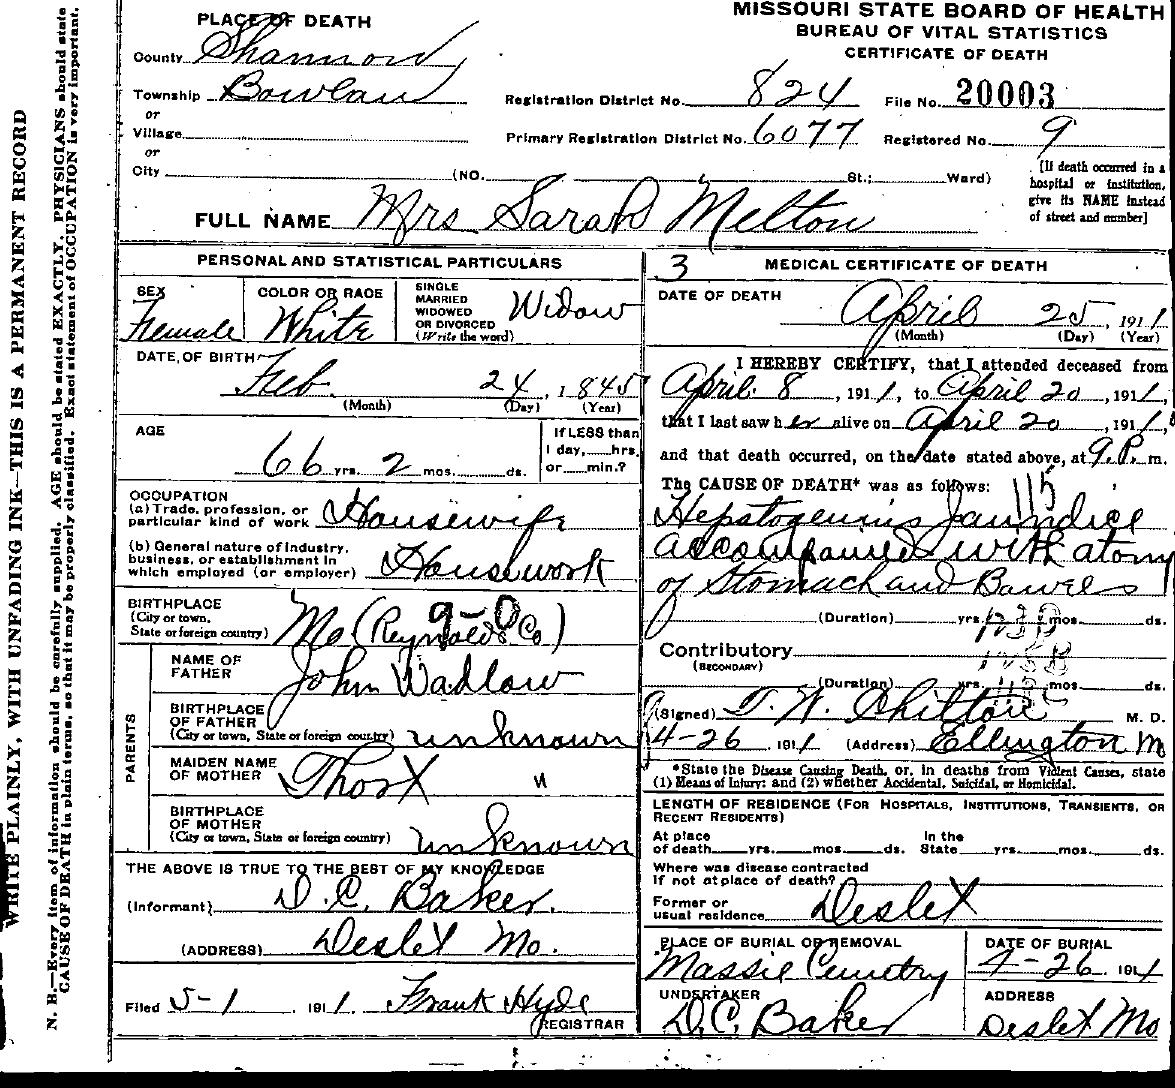 WRITE PLAINLY, WITH UNFADING INK—THIS IS A PERMANENT RECORD
N. B.—Every item of information should be carefully supplied. AGE should be stated EXACTLY. PHYSICIANS should state
CAUSE OF DEATH in plain terms, so that it may be properly classified. Exact statement of OCCUPATION is very important.
MISSOURI STATE BOARD OF HEALTH
BUREAU OF VITAL STATISTICS
CERTIFICATE OF DEATH
PLACE OF DEATH
County Shannon
Township Bowlan
or
Village
or
City (NO. St.; Ward)
Registration District No. 824 File No. 20003
Primary Registration District No. 6077 Registered No. 9
[If death occurred in a
hospital or institution,
give its NAME instead
of street and number]
FULL NAME Mrs Sarah Melton
PERSONAL AND STATISTICAL PARTICULARS
SEX
Female
COLOR OR RACE
White
SINGLE
MARRIED
WIDOWED
OR DIVORCED
(Write the word)
Widow
DATE OF BIRTH
Feb 24, 1845
(Month) (Day) (Year)
AGE
66 yrs. 2 mos. ds.
If LESS than
1 day, hrs.
or min.?
OCCUPATION
(a) Trade, profession, or
particular kind of work Housewife
(b) General nature of industry,
business, or establishment in
which employed (or employer) Housework
BIRTHPLACE
(City or town,
State or foreign country) Mo (Reynolds Co)
9-0
PARENTS
NAME OF
FATHER John Wadlow
BIRTHPLACE
OF FATHER
(City or town, State or foreign country) unknown
MAIDEN NAME
OF MOTHER "
BIRTHPLACE
OF MOTHER
(City or town, State or foreign country) unknown
THE ABOVE IS TRUE TO THE BEST OF MY KNOWLEDGE
(Informant) D.C. Baker.
(ADDRESS) Deslet Mo.
Filed 5-1 1911. Frank Hyde
REGISTRAR
3 MEDICAL CERTIFICATE OF DEATH
DATE OF DEATH
April 25, 1911
(Month) (Day) (Year)
I HEREBY CERTIFY, that I attended deceased from
April 8, 1911, to April 20, 1911,
that I last saw her alive on April 20, 1911,
and that death occurred, on the date stated above, at 9.P. m.
The CAUSE OF DEATH* was as follows: 115
Hepatogenius Jaundice
accompanied with atony
of Stomach and Bowels
(Duration) yrs. mos. ds.
Contributory
(SECONDARY)
(Duration) yrs. mos. ds.
(Signed) T. W. Chilton M. D.
4-26 1911 (Address) Ellington M
*State the Disease Causing Death, or, in deaths from Violent Causes, state
(1) Means of Injury; and (2) whether Accidental, Suicidal, or Homicidal.
LENGTH OF RESIDENCE (For Hospitals, Institutions, Transients, or
Recent Residents)
At place In the
of death yrs. mos. ds. State yrs. mos. ds.
Where was disease contracted
If not at place of death?
Former or
usual residence Deslet
PLACE OF BURIAL OR REMOVAL
Massie Cemetry
DATE OF BURIAL
4-26 1911
UNDERTAKER
D.C. Baker
ADDRESS
Deslet Mo